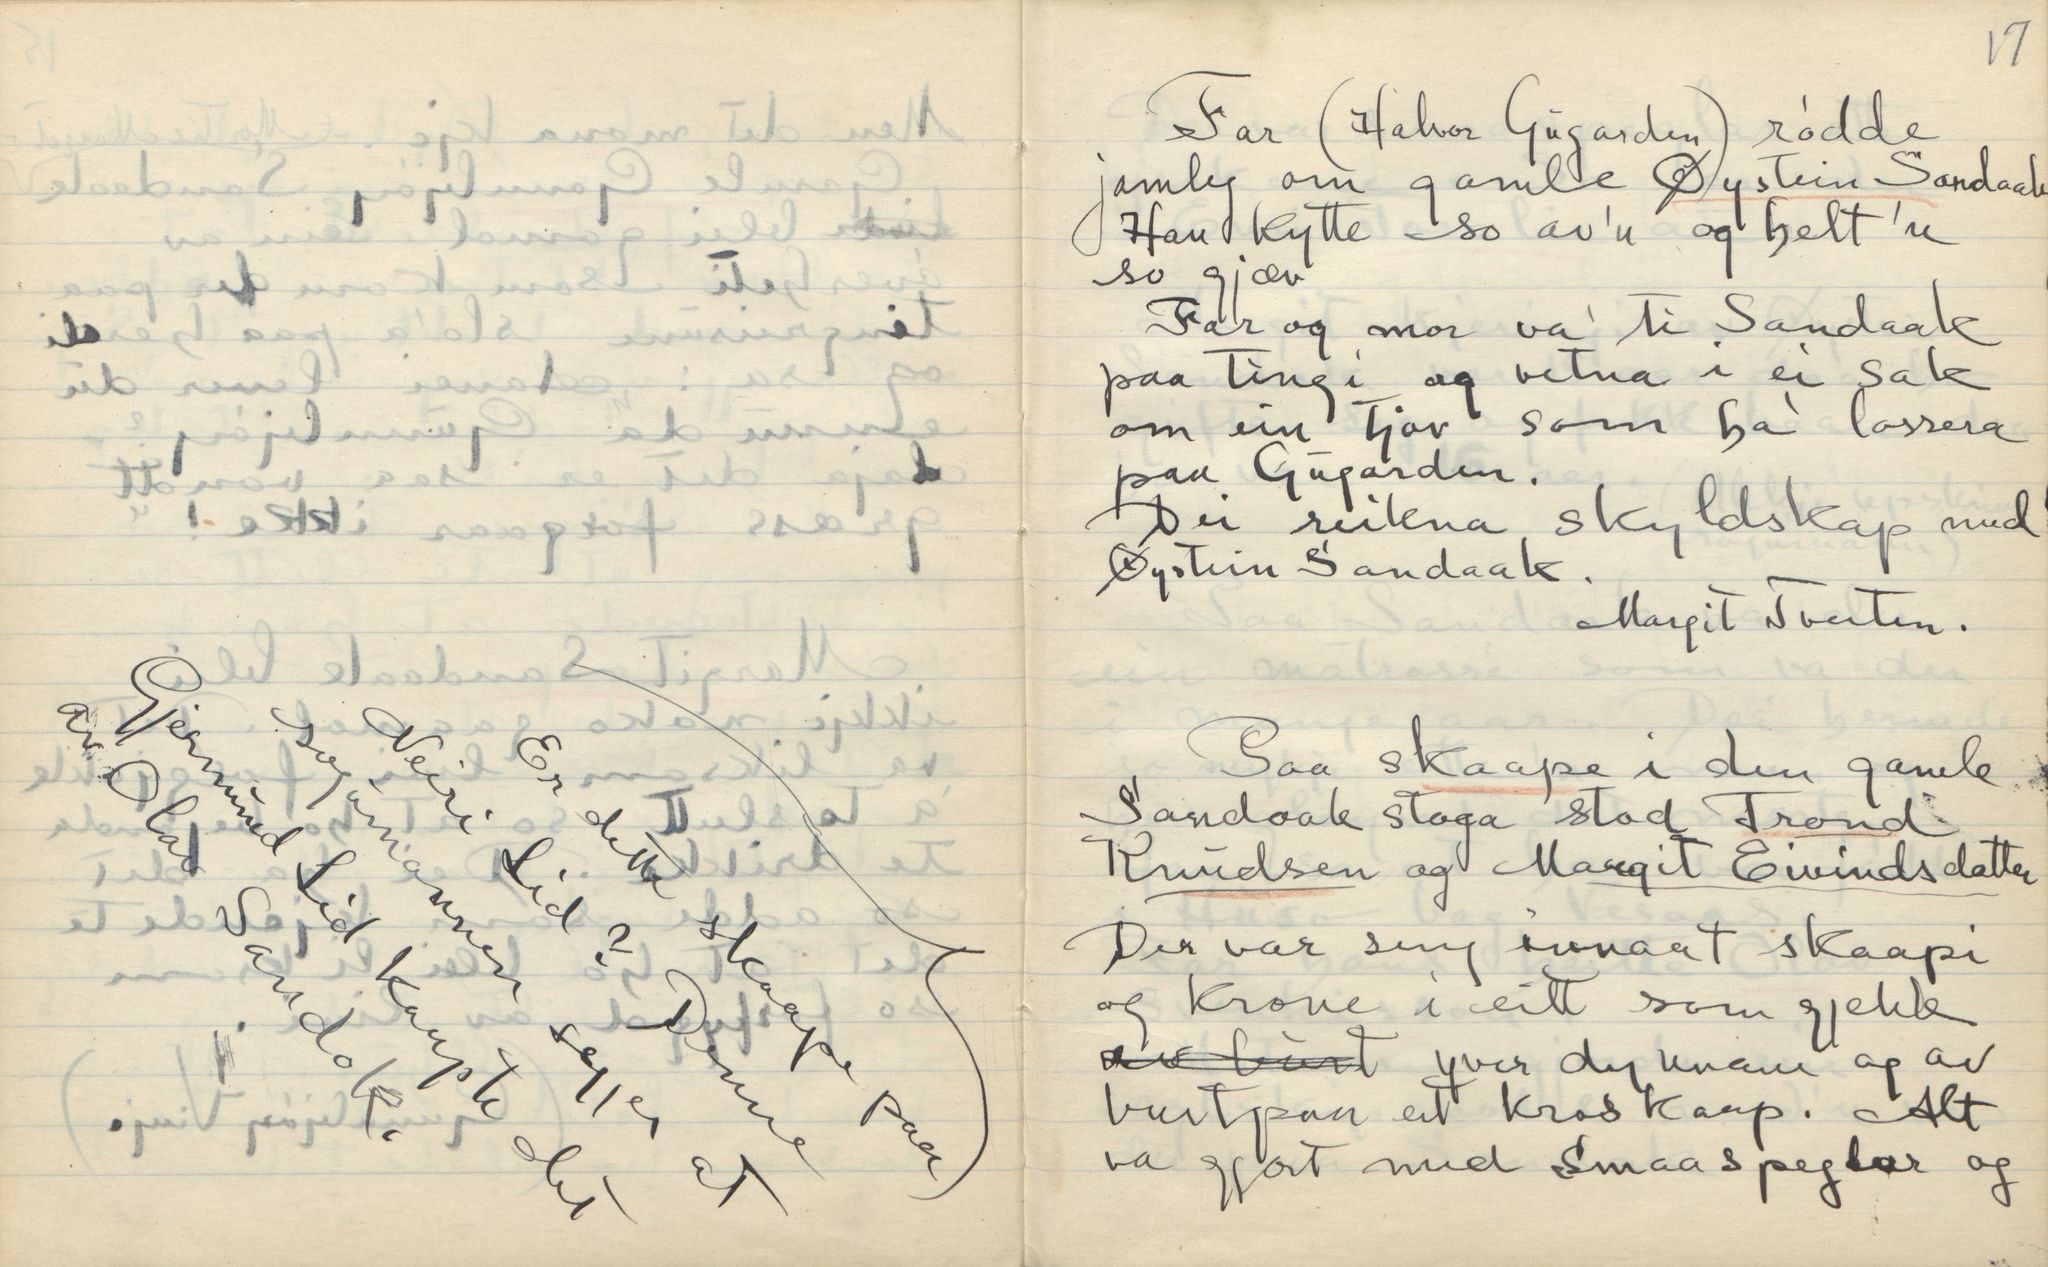 Er dette skaape paa
Neiri Lid? Denne
sogumannen segjer at
Gjermund Lid kaupte det
av Olav Sandok.
17
Far (Halvor Gūgarden) rødde
jamleg om gamle Øystein Sandaak
Han kytte so av'n og helt 'n
so gjæv
Far og mor va' ti Sandaak
paa tingi og vitna i ei sak
om ein tjov som ha' lossera
paa Gūgarden.
Dei reikna skyldskap med
Øystein Sandaak.
Margit Tveiten.
Paa skaape i den gamle
Sandaak stoga stod Trond
Knūdsen og Margit Eivindsdatter
Der var seng innaat skaapi
og krone i eitt som gjekk
yver dynnane og av
burtpaa eit kroskaap. Alt
va gjort med smaaspeglar og